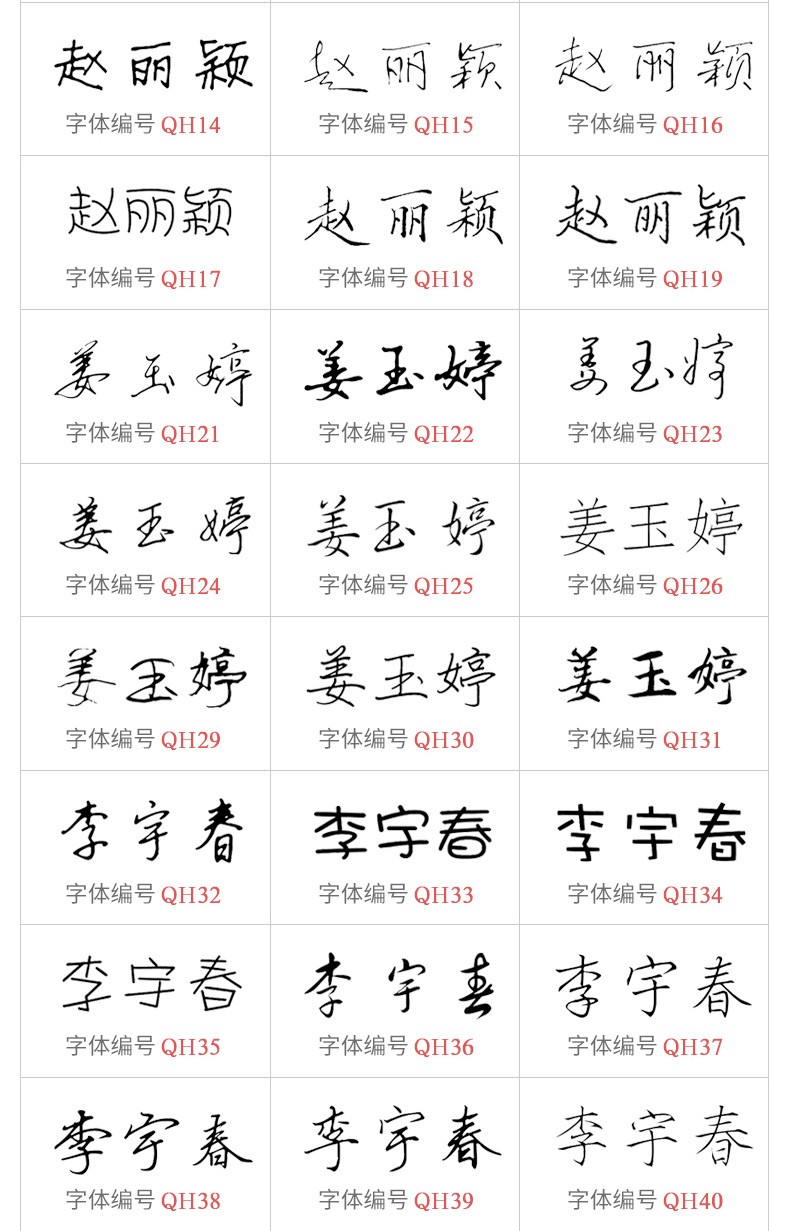 赵丽颖 赵丽颖 赵丽颖
字体编号 QH14 字体编号 QH15 字体编号 QH16
赵丽颖 赵丽颖 赵丽颖
字体编号 QH17 字体编号 QH18 字体编号 QH19
姜玉婷 姜玉婷 姜玉婷
字体编号 QH21 字体编号 QH22 字体编号 QH23
姜玉婷 姜玉婷 姜玉婷
字体编号 QH24 字体编号 QH25 字体编号 QH26
姜玉婷 姜玉婷 姜玉婷
字体编号 QH29 字体编号 QH30 字体编号 QH31
李宇春 李宇春 李宇春
字体编号 QH32 字体编号 QH33 字体编号 QH34
李宇春 李宇春 李宇春
字体编号 QH35 字体编号 QH36 字体编号 QH37
李宇春 李宇春 李宇春
字体编号 QH38 字体编号 QH39 字体编号 QH40